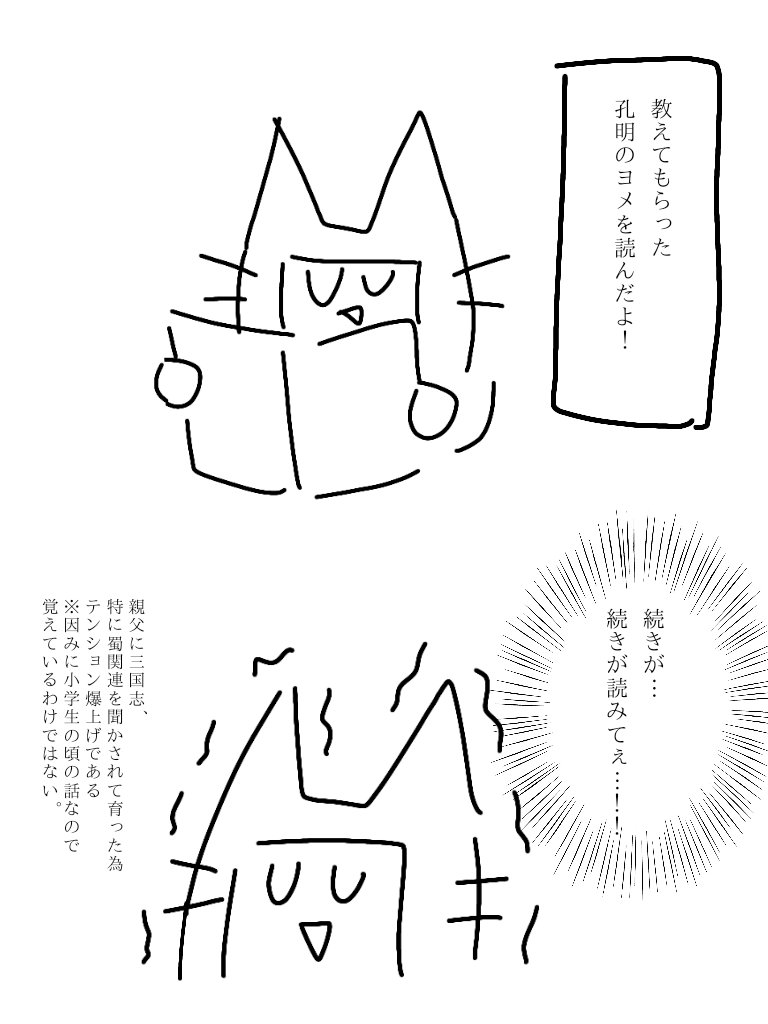 教えてもらった
孔明のヨメを読んだよ！
続きが…
続きが読みてぇ…！！
親父に三国志、
特に蜀関連を聞かされて育った為
テンション爆上げである
※因みに小学生の頃の話なので
覚えているわけではない。